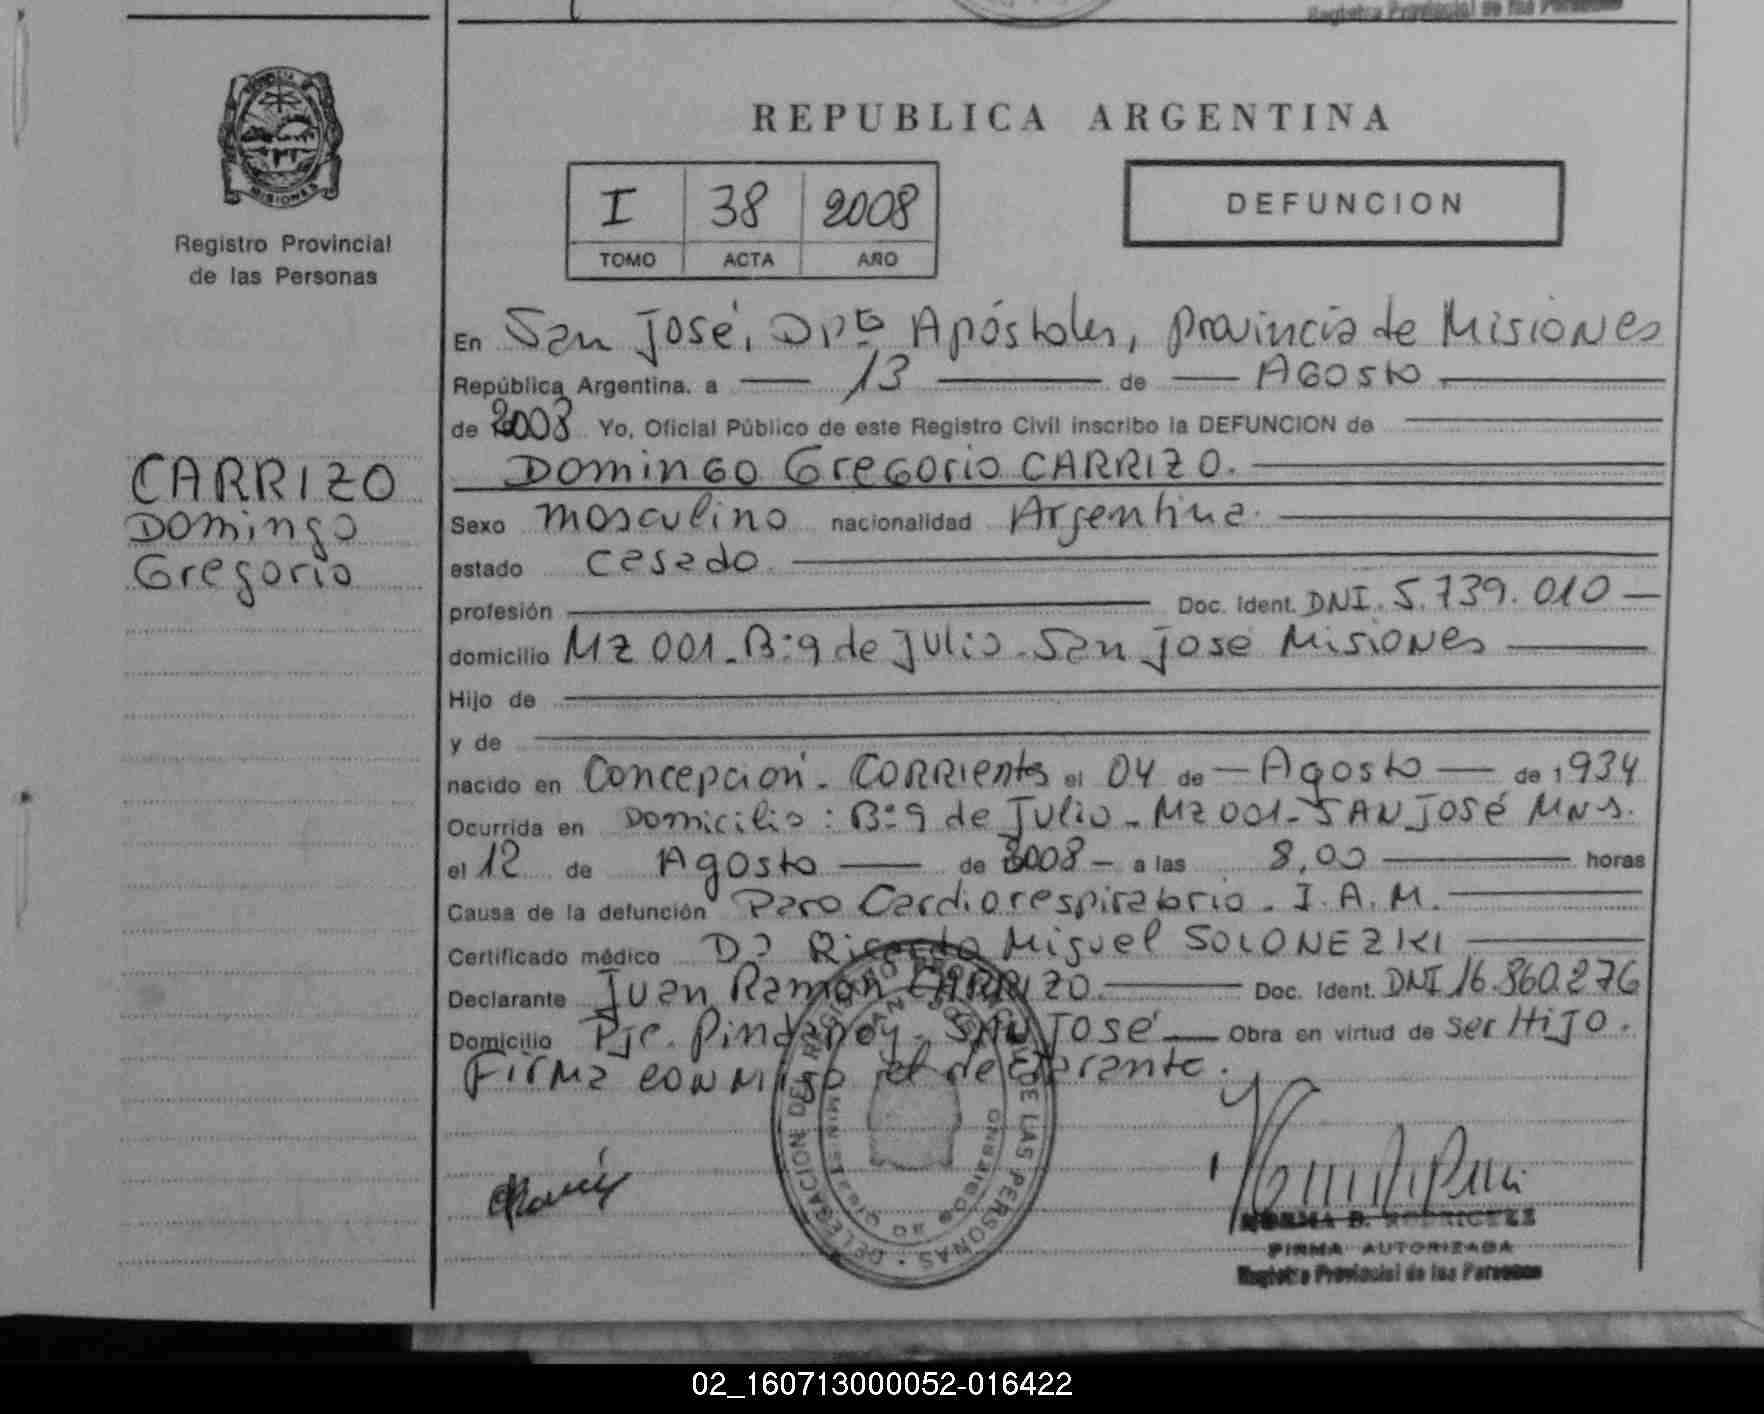 Registro Provincial de las Personas
REPUBLICA ARGENTINA
MISIONES
Registro Provincial
de las Personas
I 38 2008
TOMO ACTA AÑO
DEFUNCION
En San José, Dpto Apóstoles, Provincia de Misiones
República Argentina. a — 13 — de — Agosto —
de 2008 Yo, Oficial Público de este Registro Civil inscribo la DEFUNCION de
Domingo Gregorio CARRIZO.
CARRIZO
Domingo
Gregorio
Sexo masculino nacionalidad Argentina.
estado casado
profesión — Doc. Ident. DNI. 5.739.010 —
domicilio Mz 001 - Bº 9 de Julio - San José Misiones —
Hijo de —
y de —
nacido en Concepción - CORRIentes el 04 de — Agosto — de 1934
Ocurrida en Domicilio: Bº 9 de Julio - Mz 001 - SAN JOSÉ Mns.
el 12 de Agosto — de 2008 — a las 8,00 — horas
Causa de la defunción Paro Cardiorespiratorio - I.A.M. —
Certificado médico Dº Ricardo Miguel SOLONEZKI —
Declarante Juan Ramón CARRIZO. — Doc. Ident. DNI 16.860.276
Domicilio Pje. Pindapoy - SAN JOSÉ — Obra en virtud de ser Hijo.
Firma conmigo el declarante.
DELEGACION DEL REGISTRO DE LAS PERSONAS
NORMA B. RODRIGUEZ
FIRMA AUTORIZADA
Registro Provincial de las Personas
02_160713000052-016422